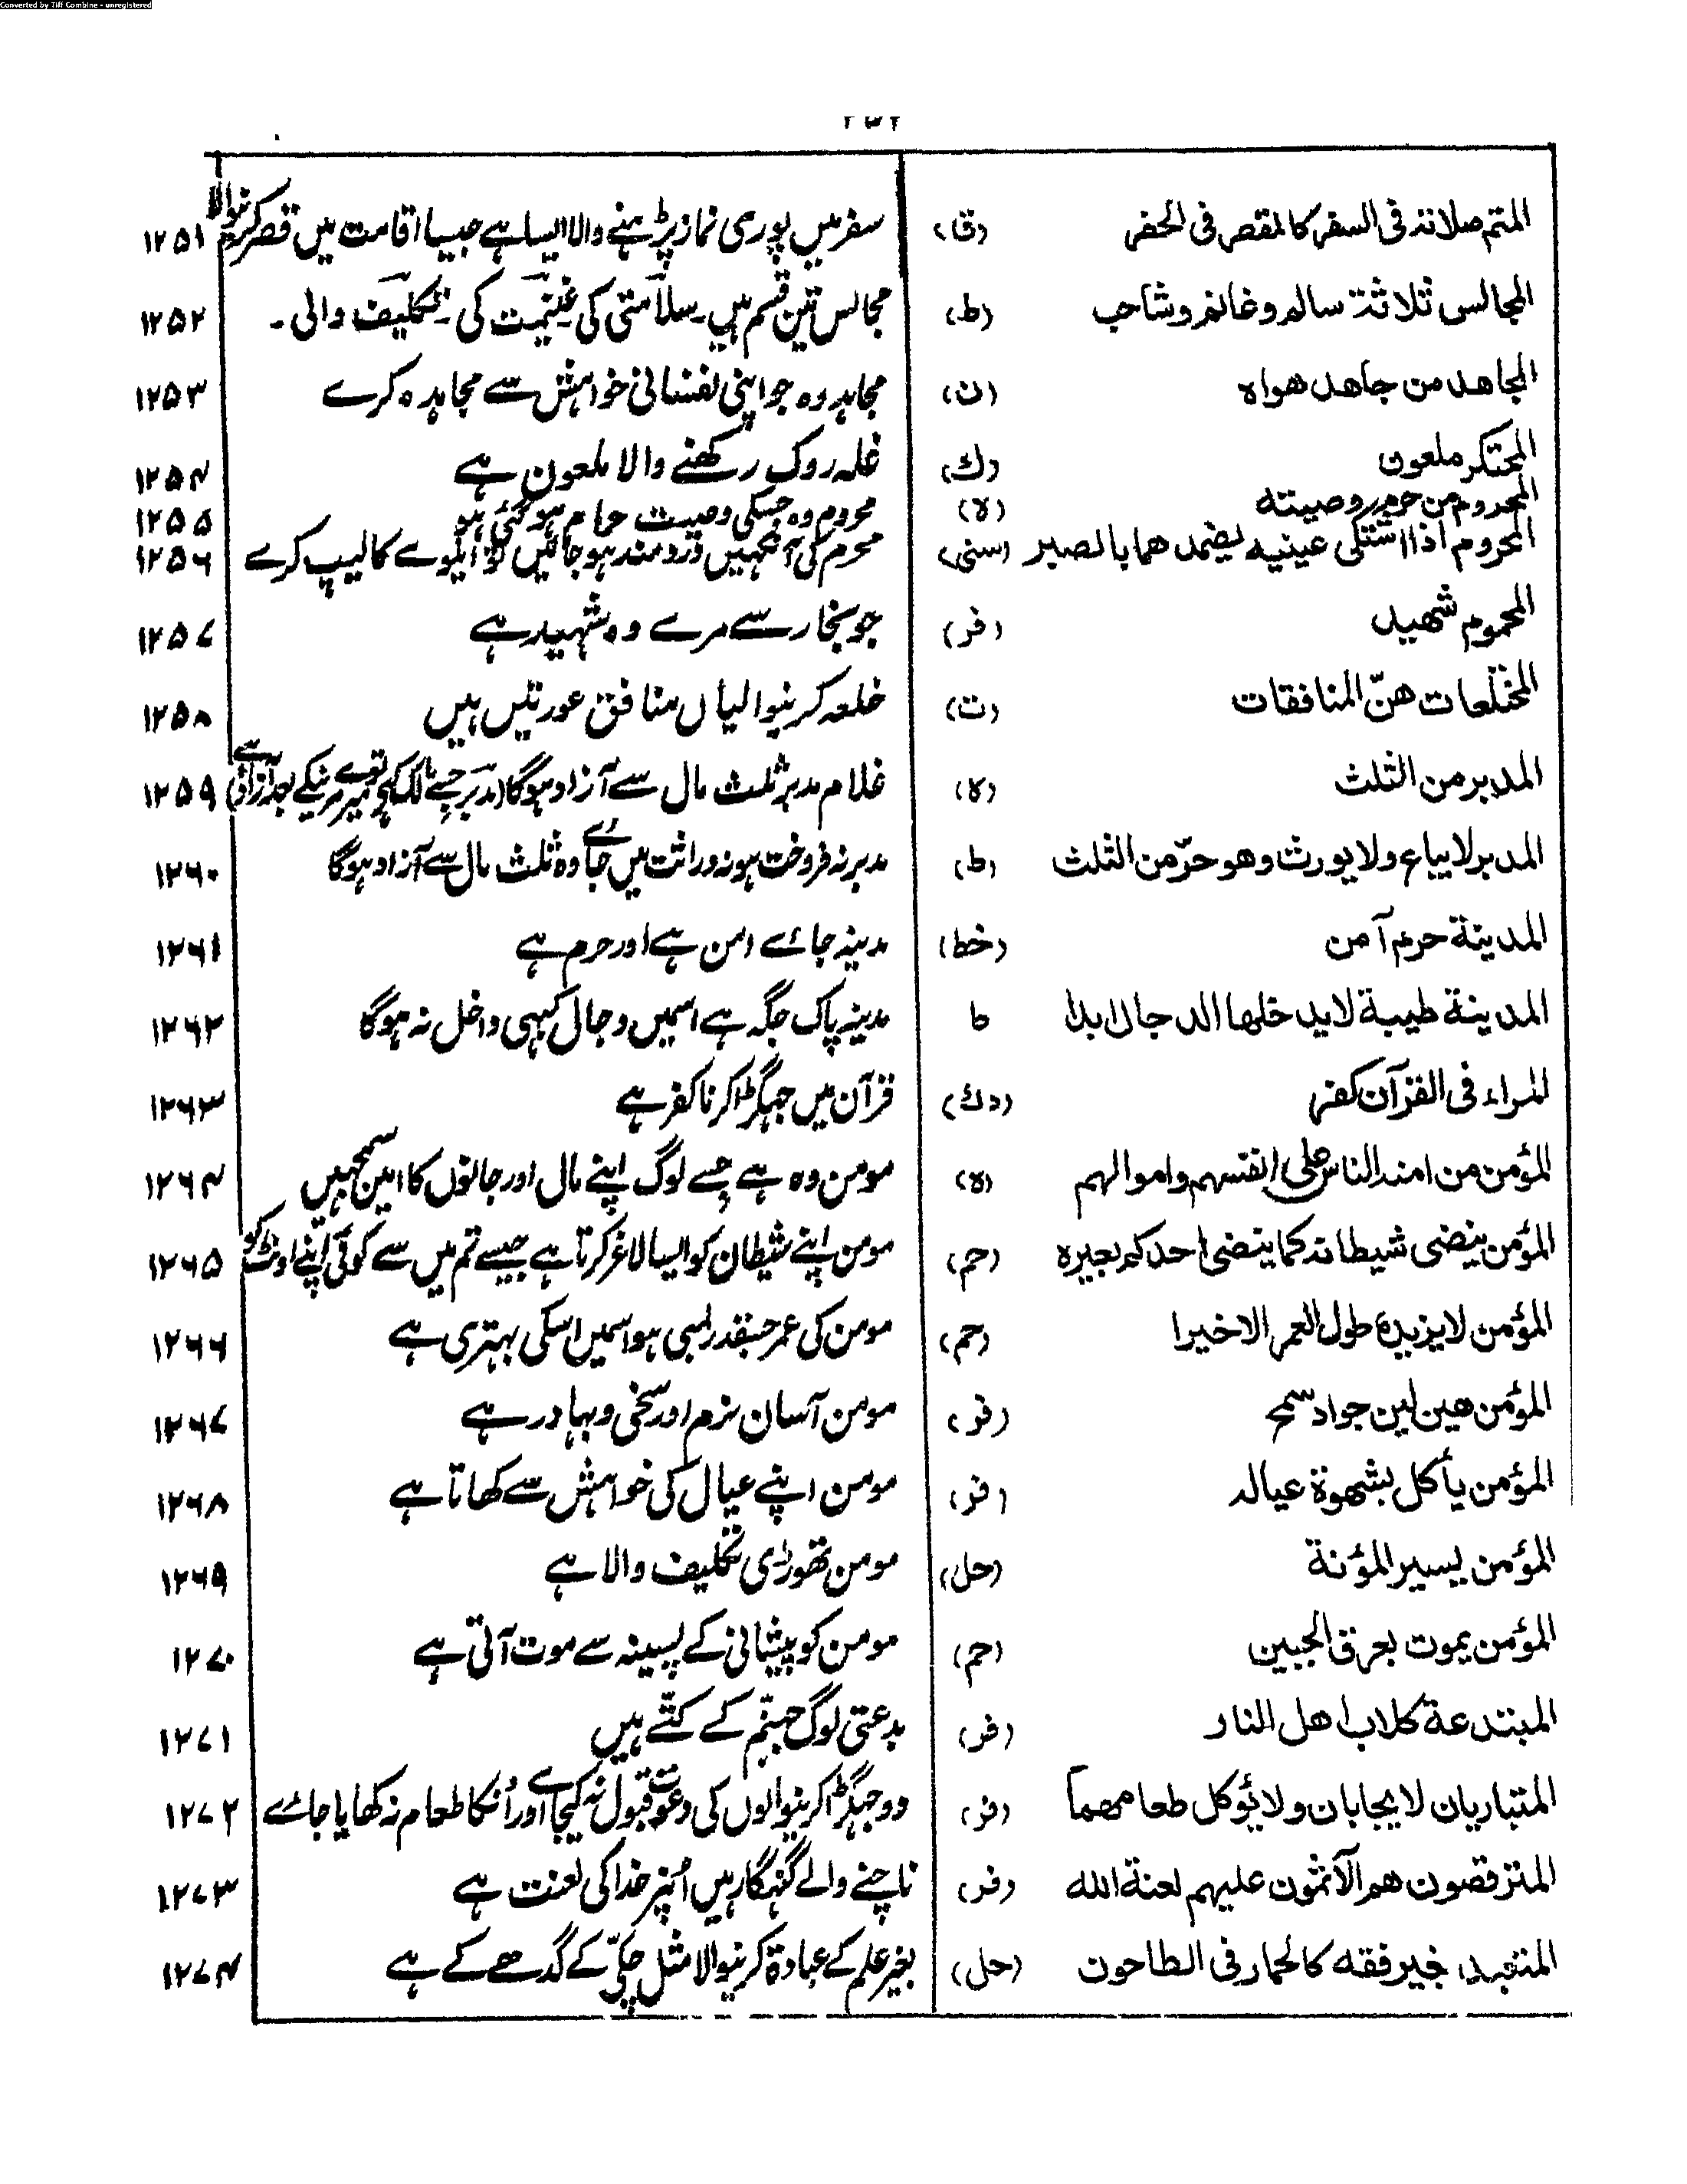 Converted by Tiff Combine - unregistered
المتم صلاته فی السفر کالمقصر فی الحضر (ق) سفر میں پوری نماز پڑہنے والا ایسا ہے جیسا اقامت میں قصر کرنیوالا ۱۲۵۱
المجالس ثلاثة سالم وغانم وشاحب (ط) مجالس تین قسم ہیں۔ سلامتی کی۔ غنیمت کی۔ تکلیف والی۔ ۱۲۵۲
المجاهد من جاهد هواه (ن) مجاہد وہ جو اپنی نفسانی خواہش سے مجاہدہ کرے ۱۲۵۳
المحتکر ملعون (ك) غلہ روک رکھنے والا ملعون ہے ۱۲۵۴
المحروم من حرم وصیته (لا) محروم وہ جسکی وصیت حرام ہو گئی ہو ۱۲۵۵
المحروم اذا اشتکی عینیه یضمد هما بالصبر (سنی) محرم کی آنکہیں دردمند ہو جائیں تو ایلوے کا لیپ کرے ۱۲۵۶
المحموم شهید (فر) جو بخار سے مرے وہ شہید ہے ۱۲۵۷
المختلعات هنّ المنافقات (ت) خلعہ کرنیوالیاں منافق عورتیں ہیں ۱۲۵۸
المدبر من الثلث (لا) غلام مدبر ثلث مال سے آزاد ہوگا ۱۲۵۹
المدبر لا یباع ولا یورث وهو حرّ من الثلث (ط) مدبر نہ فروخت ہو نہ وراثت میں جائے وہ ثلث مال سے آزاد ہوگا ۱۲۶۰
المدینة حرم آمن (خط) مدینہ جائے امن ہے اور حرم ہے ۱۲۶۱
المدینة طیبة لا یدخلها الدجال ابدا ط مدینہ پاک جگہ ہے اسمیں دجال کبہی داخل نہ ہوگا ۱۲۶۲
المراء فی القرآن کفر (دك) قرآن میں جہگڑا کرنا کفر ہے ۱۲۶۳
المؤمن من امنه الناس علی انفسهم واموالهم (لا) مومن وہ ہے جسے لوگ اپنے مال اور جانوں کا امین سمجہیں ۱۲۶۴
المؤمن ینضی شیطانه کما ینضی احدکم بعیره (حم) مومن اپنے شیطان کو ایسا لاغر کرتا ہے جیسے تم میں سے کوئی اپنے اونٹ کو ۱۲۶۵
المؤمن لا یزیده طول العمر الا خیرا (حم) مومن کی عمر جسقدر لمبی ہو اسمیں اسکی بہتری ہے ۱۲۶۶
المؤمن هین لین جواد سمح (فر) مومن آسان نرم اور سخی و بہادر ہے ۱۲۶۷
المؤمن یأکل بشهوة عیاله (فر) مومن اپنے عیال کی خواہش سے کھاتا ہے ۱۲۶۸
المؤمن یسیر المؤنة (حل) مومن تھوڑی تکلیف والا ہے ۱۲۶۹
المؤمن یموت بعرق الجبین (حم) مومن کو پیشانی کے پسینہ سے موت آتی ہے ۱۲۷۰
المبتدعة کلاب اهل النار (فر) بدعتی لوگ جہنّم کے کتّے ہیں ۱۲۷۱
المتباریان لا یجابان ولا یؤکل طعامهما (فر) دو جہگڑا کرنیوالوں کی دعوت قبول نہ کیجاے اور اُنکا طعام نہ کھایا جاے ۱۲۷۲
المترقصون هم الآثمون علیهم لعنة الله (فر) ناچنے والے گنہگار ہیں اُنپر خدا کی لعنت ہے ۱۲۷۳
المتعبد بغیر فقه کالحمار فی الطاحون (حل) بغیر علم کے عبادة کرنیوالا مثل چکّی کے گدھے کے ہے ۱۲۷۴